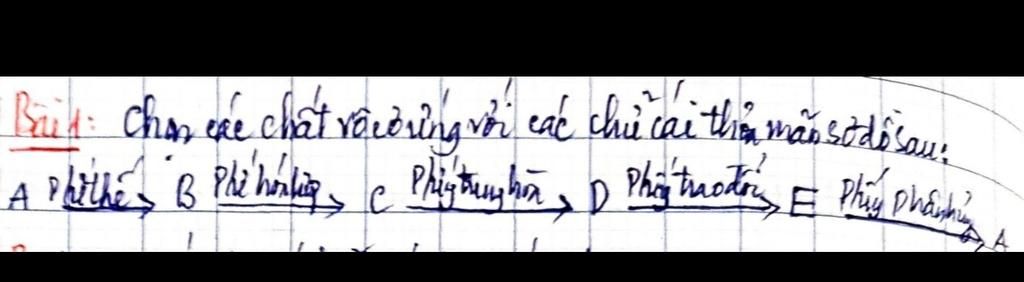 Bài 1: Chọn các chất vô cơ ứng với các chữ cái thỏa mãn sơ đồ sau:
A Phứ thế → B Phứ hóa hợp → C Phứ trung hòa → D Phứ trao đổi → E Phứ phân hủy → A